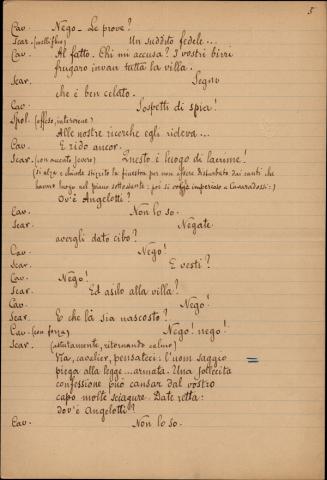 5
Cav. Nego – Le prove?
Scar. (mellifluo) Un suddito fedele...
Cav. Al fatto. Chi mi accusa? I vostri birri
frugaro invan tutta la villa.
Scar. Segno
che è ben celato.
Cav. Sospetti di spia!
Spol. (offeso, interviene)
Alle nostre ricerche egli rideva...
Cav. E rido ancor.
Scar. (con accento severo) Questo è luogo di lacrime!
(si alza e chiude stizzito la finestra per non essere disturbato dai canti che
hanno luogo nel piano sottostante: poi si volge imperioso a Cavaradossi:)
Ov'è Angelotti?
Cav. Non lo so.
Scar. Negate
avergli dato cibo?
Cav. Nego!
Scar. E vesti?
Cav. Nego!
Scar. Ed asilo alla villa?
Cav. Nego!
Scar. E che là sia nascosto?
Cav. (con forza) Nego! nego!
Scar. (astutamente, ritornando calmo)
Via, cavalier, pensateci: l'uom saggio
piega alla legge... armata. Una sollecita
confessione può cansar dal vostro
capo molte sciagure. Date retta:
dov'è Angelotti?
Cav. Non lo so.